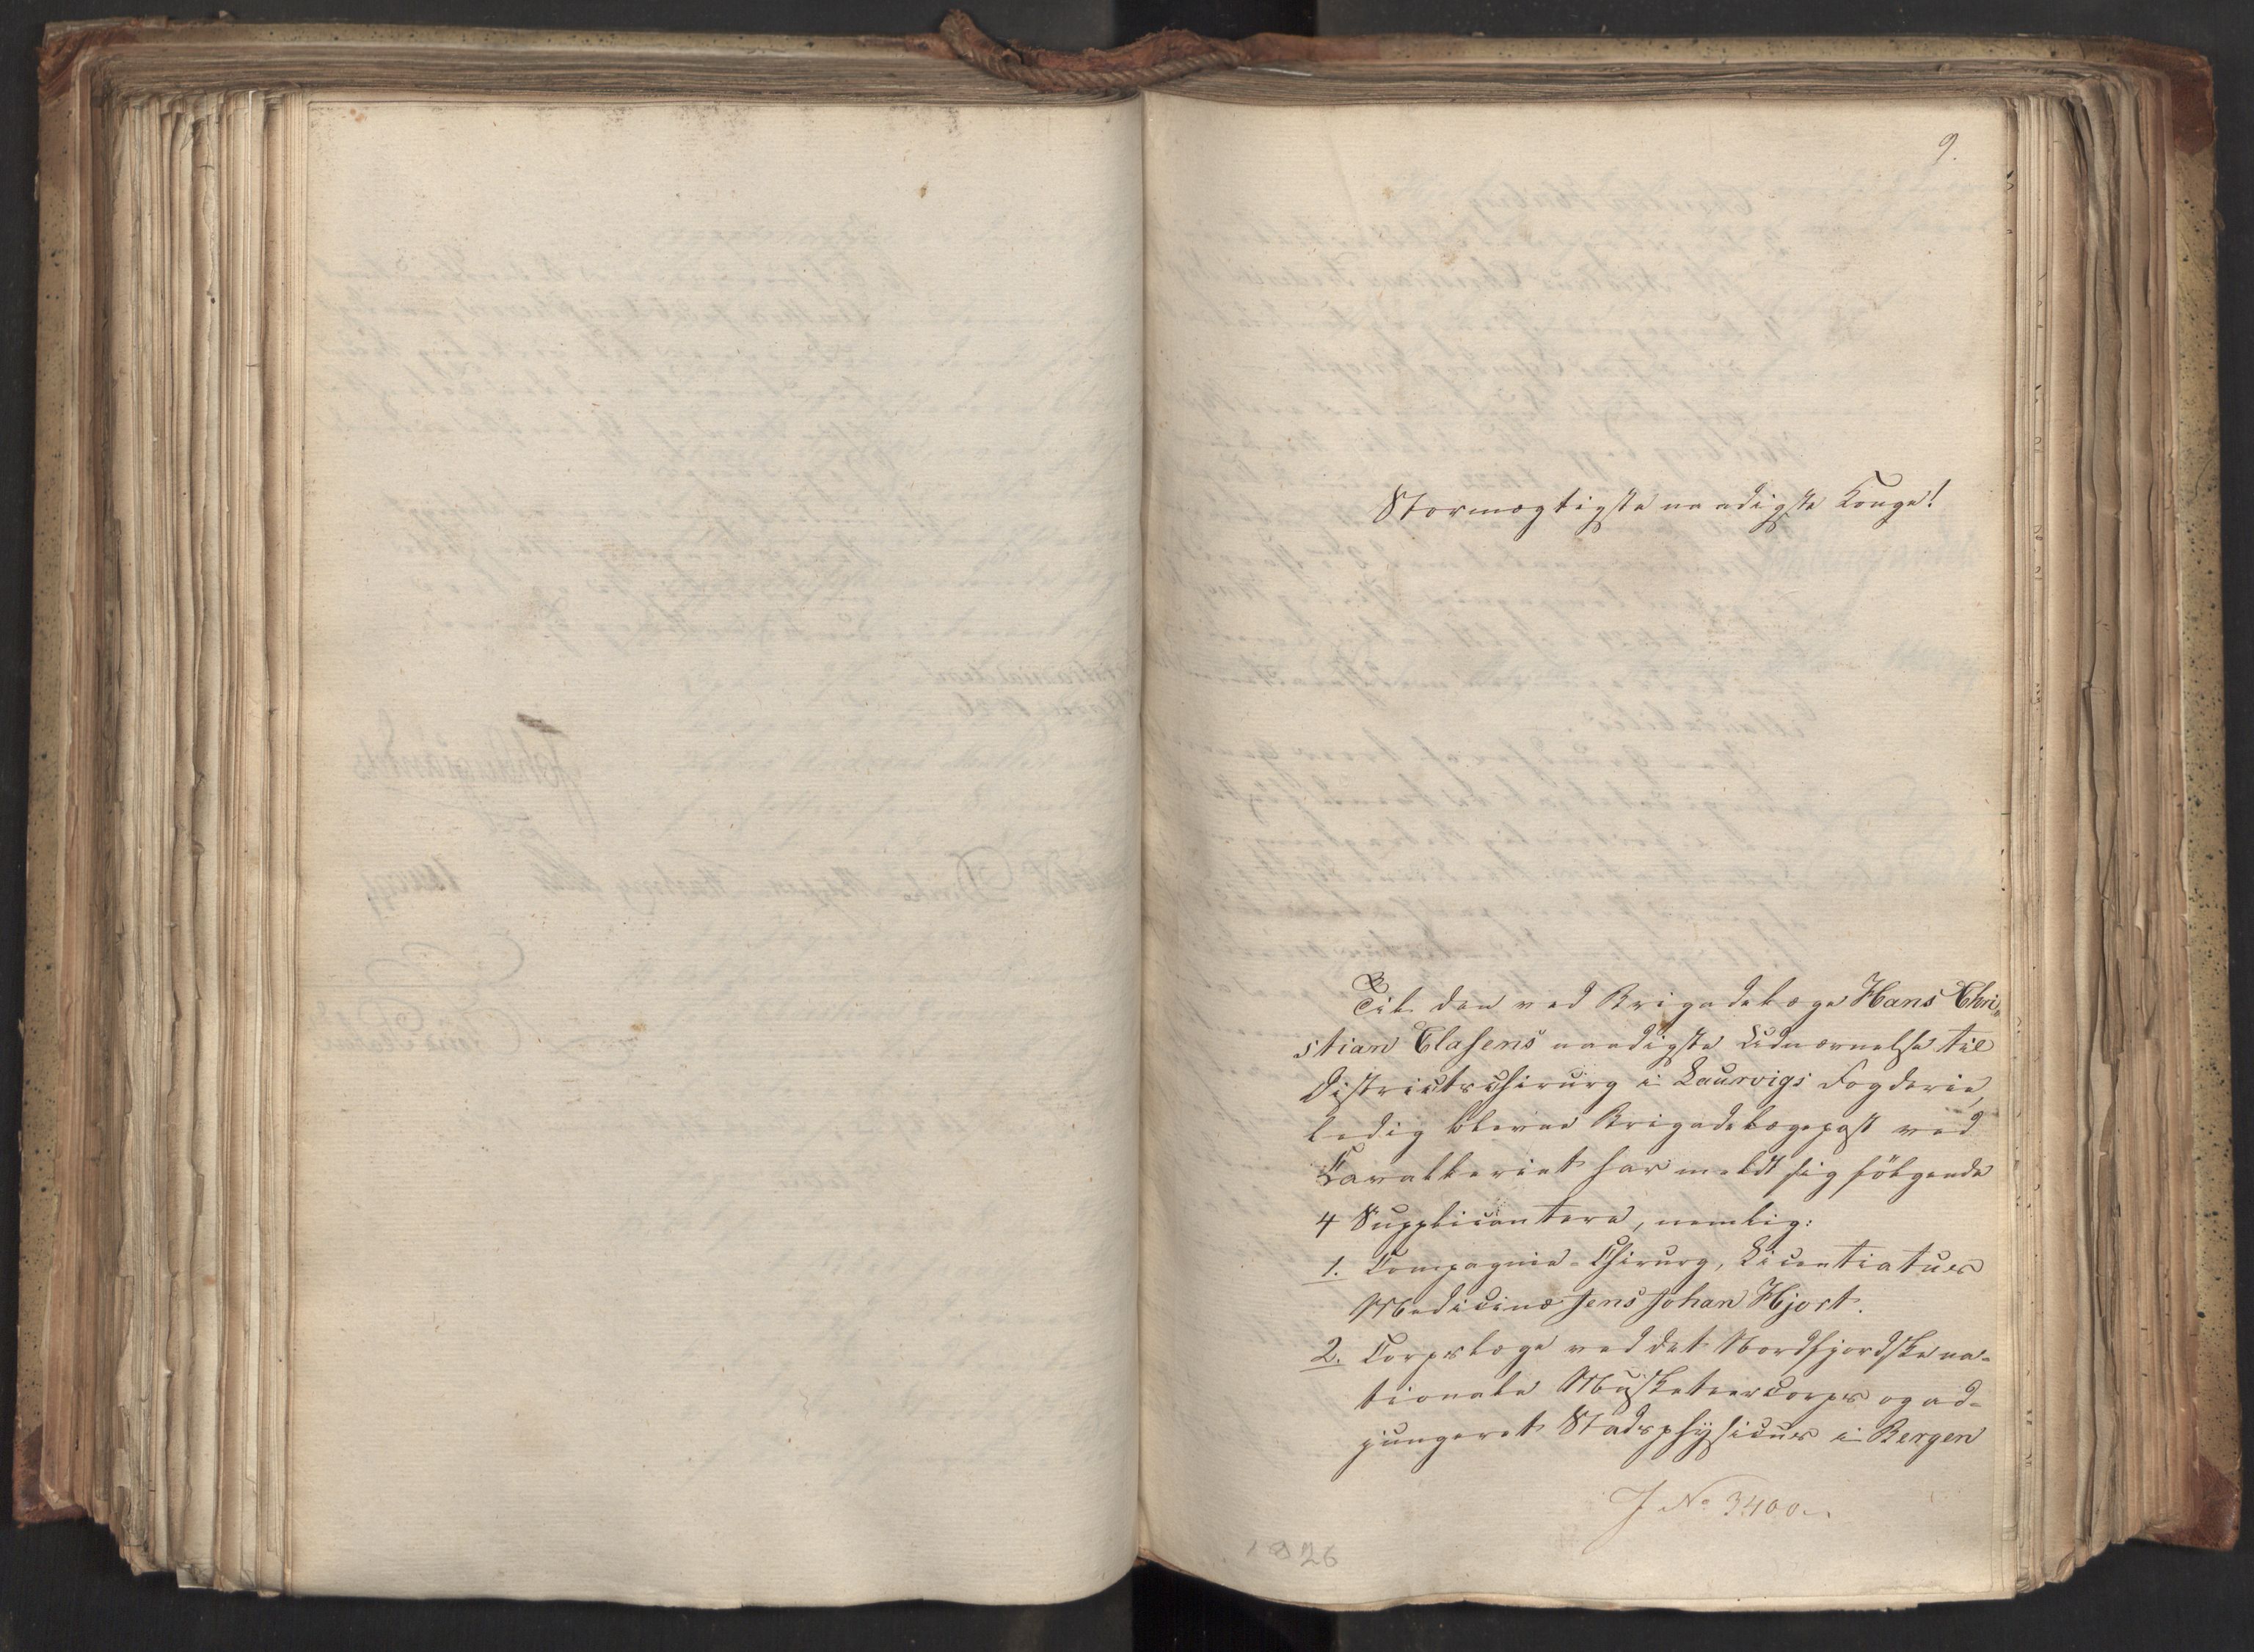 9.
Stormægtigste naadigste Konge!
Til den ved Brigadelæge Hans Chri„
stian Clasens naadigste Udnævnelse til
Districtschirurg i Laurvigs Fogderie,
ledig blevne Brigadelægepost ved
Cavalleriet har meldt sig følgende
4 Supplicantere, nemlig:
1. Compagnie-Chirurg, Licentiatus
Medicinæ Jens Johan Hjort.
2. Corpslæge ved det Nordfjordske na-
tionale Musketeercorps og ad-
jungeret Stadsphysicus i Bergen
J No 3400.
1826